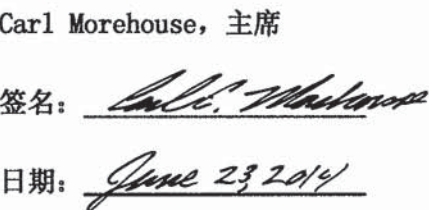 Carl Morehouse，主席
签名： Carl E. Morehouse
日期： June 23, 2014